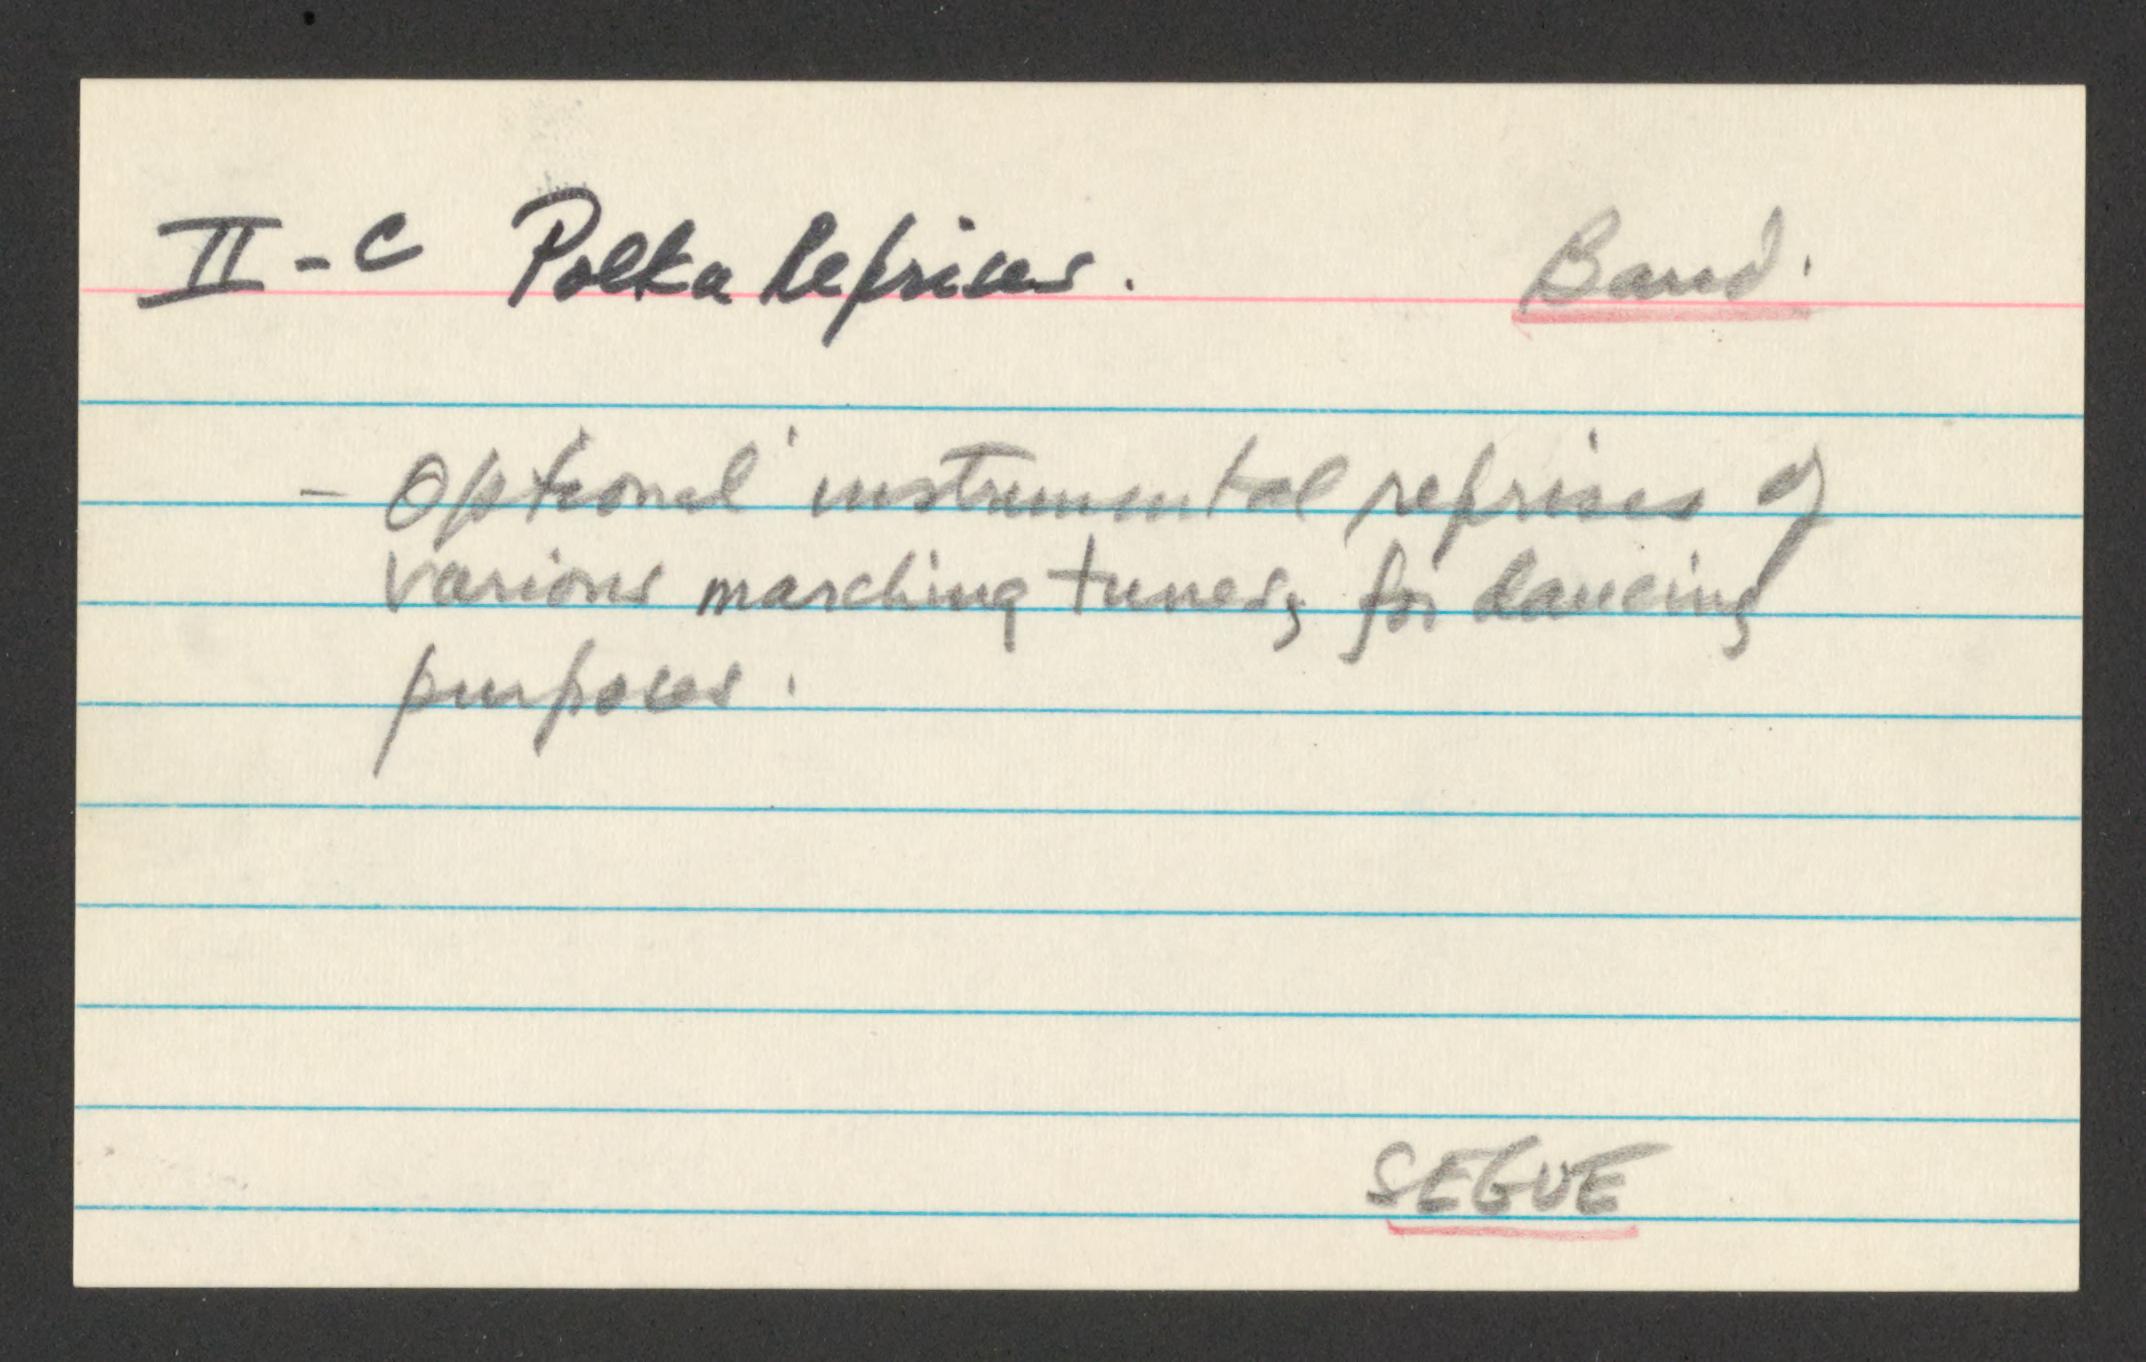 II - C Polka Reprises. Band.
- Optional instrumental reprises of
various marching tunes, for dancing
purposes.
SEGUE